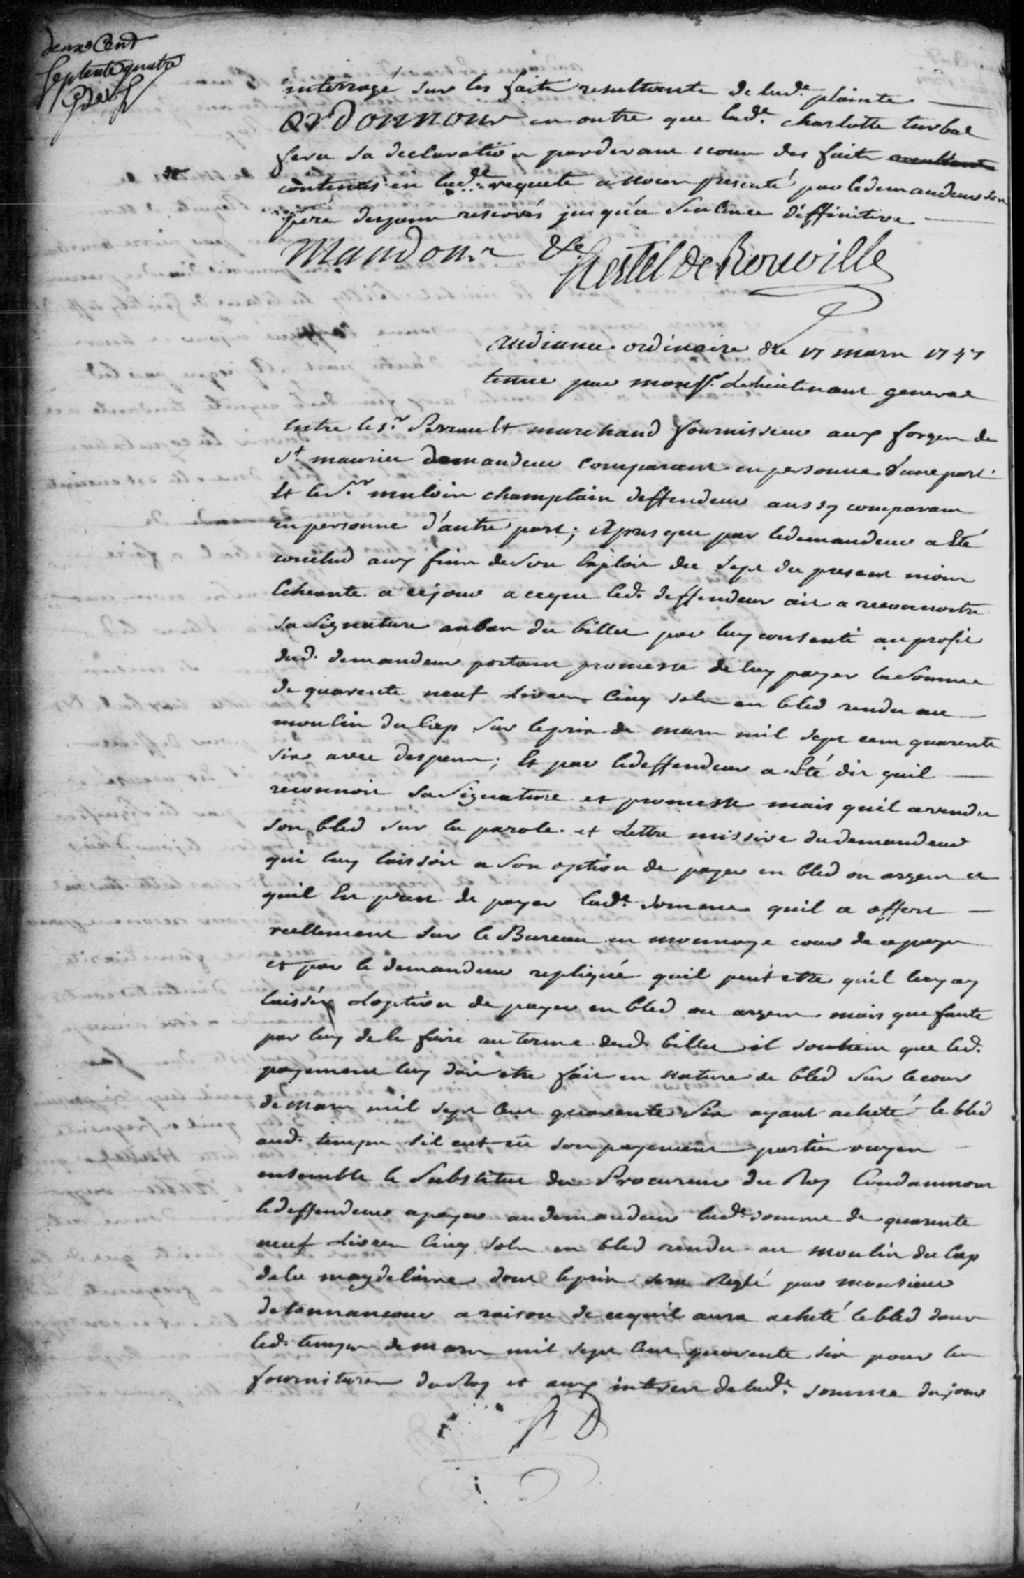 deux Cent
septente quatre
interrogé sur les faits resultants de lad.e plainte
ORDonnons en outre que lad.e charlotte turbal
fera sa declaration pardevant nous des faits
contenus en lad.e requete a nous presenté par ledemandeur son
pere depens reservés jusqu'a Sentence deffinitive
Mandons &c
hertel de Rouville
Audiance ordinaire du 17 mars 1747
tenue par mons.r Lelieutenant general
Entre le s.r Perrault marchand fournisseur aux forges de
s.t maurice demandeur comparant en personne d'une part
Et le S.r muloin champlain deffendeur aussy comparant
en personne d'autre part; Apres que par ledemandeur a Eté
conclud aux fins deson Exploit du Sept du present mois
Echeante a cejour aceque led. deffendeur ait a reconnoitre
sa Signature aubas du billet par luy consenti au profit
dud. demandeur portant promesse de luy payer la Somme
de quarente neuf Livres Cinq sols en bled rendu au
moulin du Cap sur leprix de mars mil sept cent quarente
six avec depens; Et par ledeffendeur a Eté dit quil
reconnoit sa Signature et promesse mais quil avendu
son bled sur la parole et Lettre missive dudemandeur
qui luy laissoit a son option de payer en bled ou argent et
quil Est prest de payer lad.e somme quil a offert
reellement sur le Bureau en monnoye cour de ce pays
et par le demandeur repliqué quil peut etre quil luy ay
laissée loption de payer en bled ou argent mais que faute
par luy de le faire au terme dud. billet il soutient que led.
payement luy doit etre fait en nature de bled sur lecour
de mars mil sept Cent quarente Six ayant acheté le bled
aud. temps sil eut eté son payement parties ouyes
ensemble le Substitut du Procureur du Roy Condamnons
ledeffendeur apayer audemandeur lad.e somme de quarente
neuf Livres Cinq sols en bled rendu au moulin du Cap
dela magdelaine dont leprix sera Reglé par monsieur
detonnancour a raison de cequil aura acheté lebled dans
led. temps de mars mil sept Cent quarente six pour les
fournitures du Roy et aux interest de lad.e somme du jour